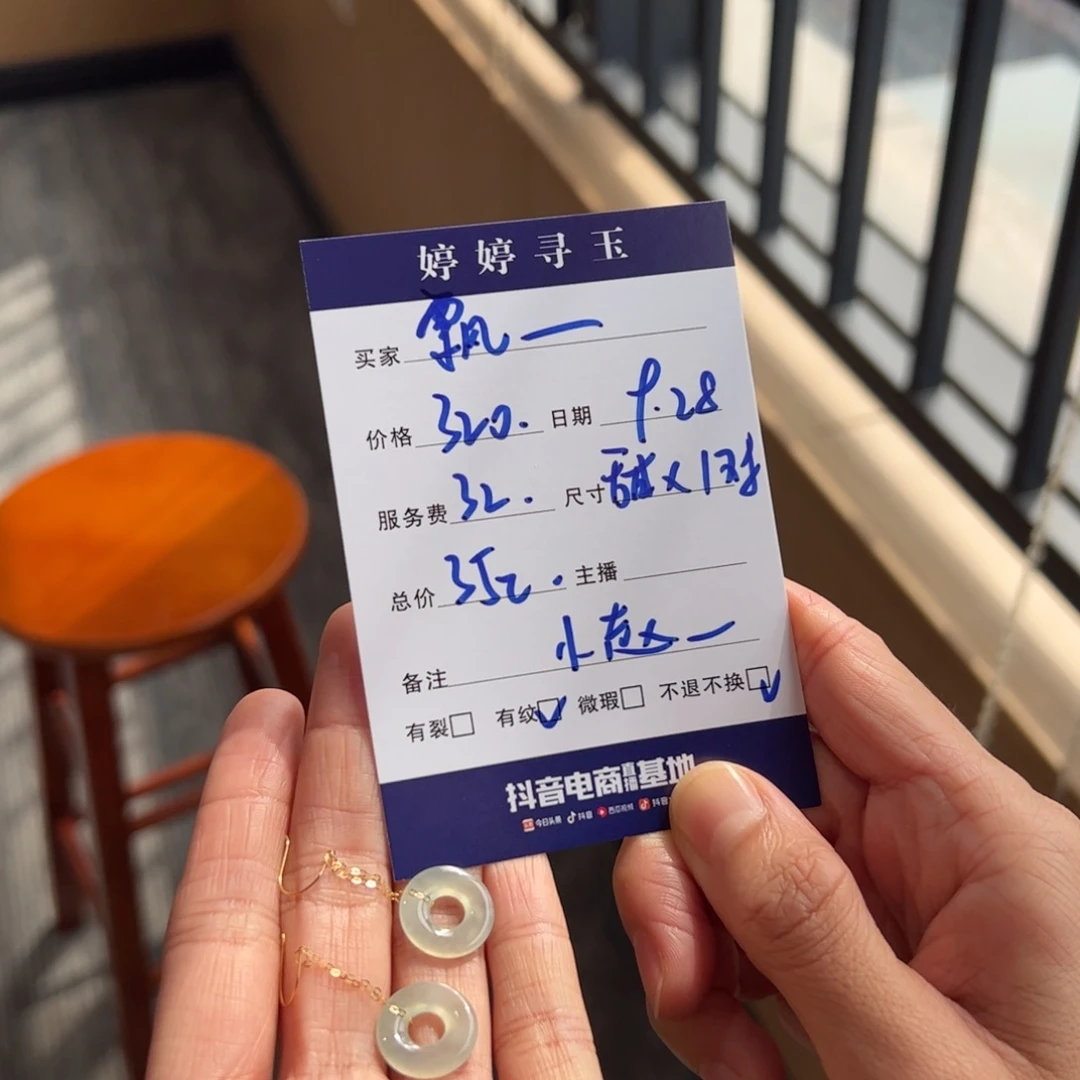 婷婷寻玉
买家 飘一
价格 320. 日期 9.28
服务费 32. 尺寸
总价 352. 主播
小赵一
备注
有裂□ 有纹☑ 微瑕□ 不退不换☑
抖音电商直播基地
今日头条 抖音 西瓜视频 抖音